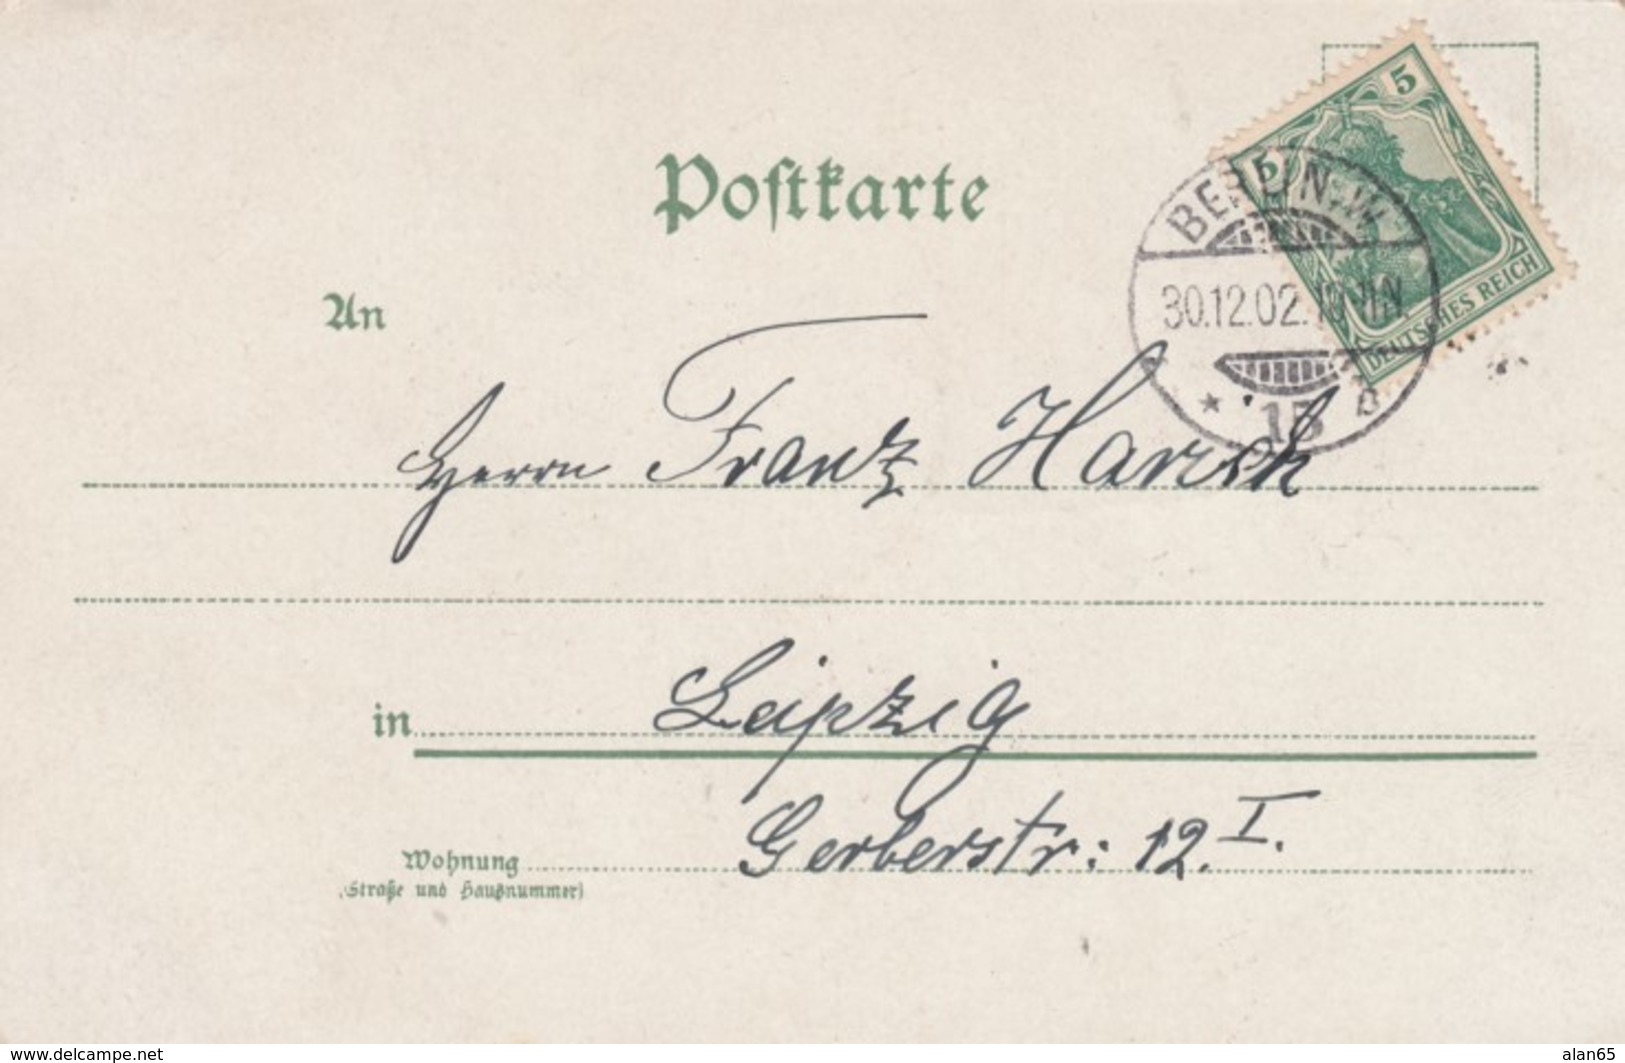 Postkarte
5
5
DEUTSCHES REICH
BERLIN.W.
30.12.02.10
* 15
An
Herrn Franz
in Leipzig
Wohnung Gerberstr: 12. I.
(Straße und Hausnummer)
www.delcampe.net
alan65